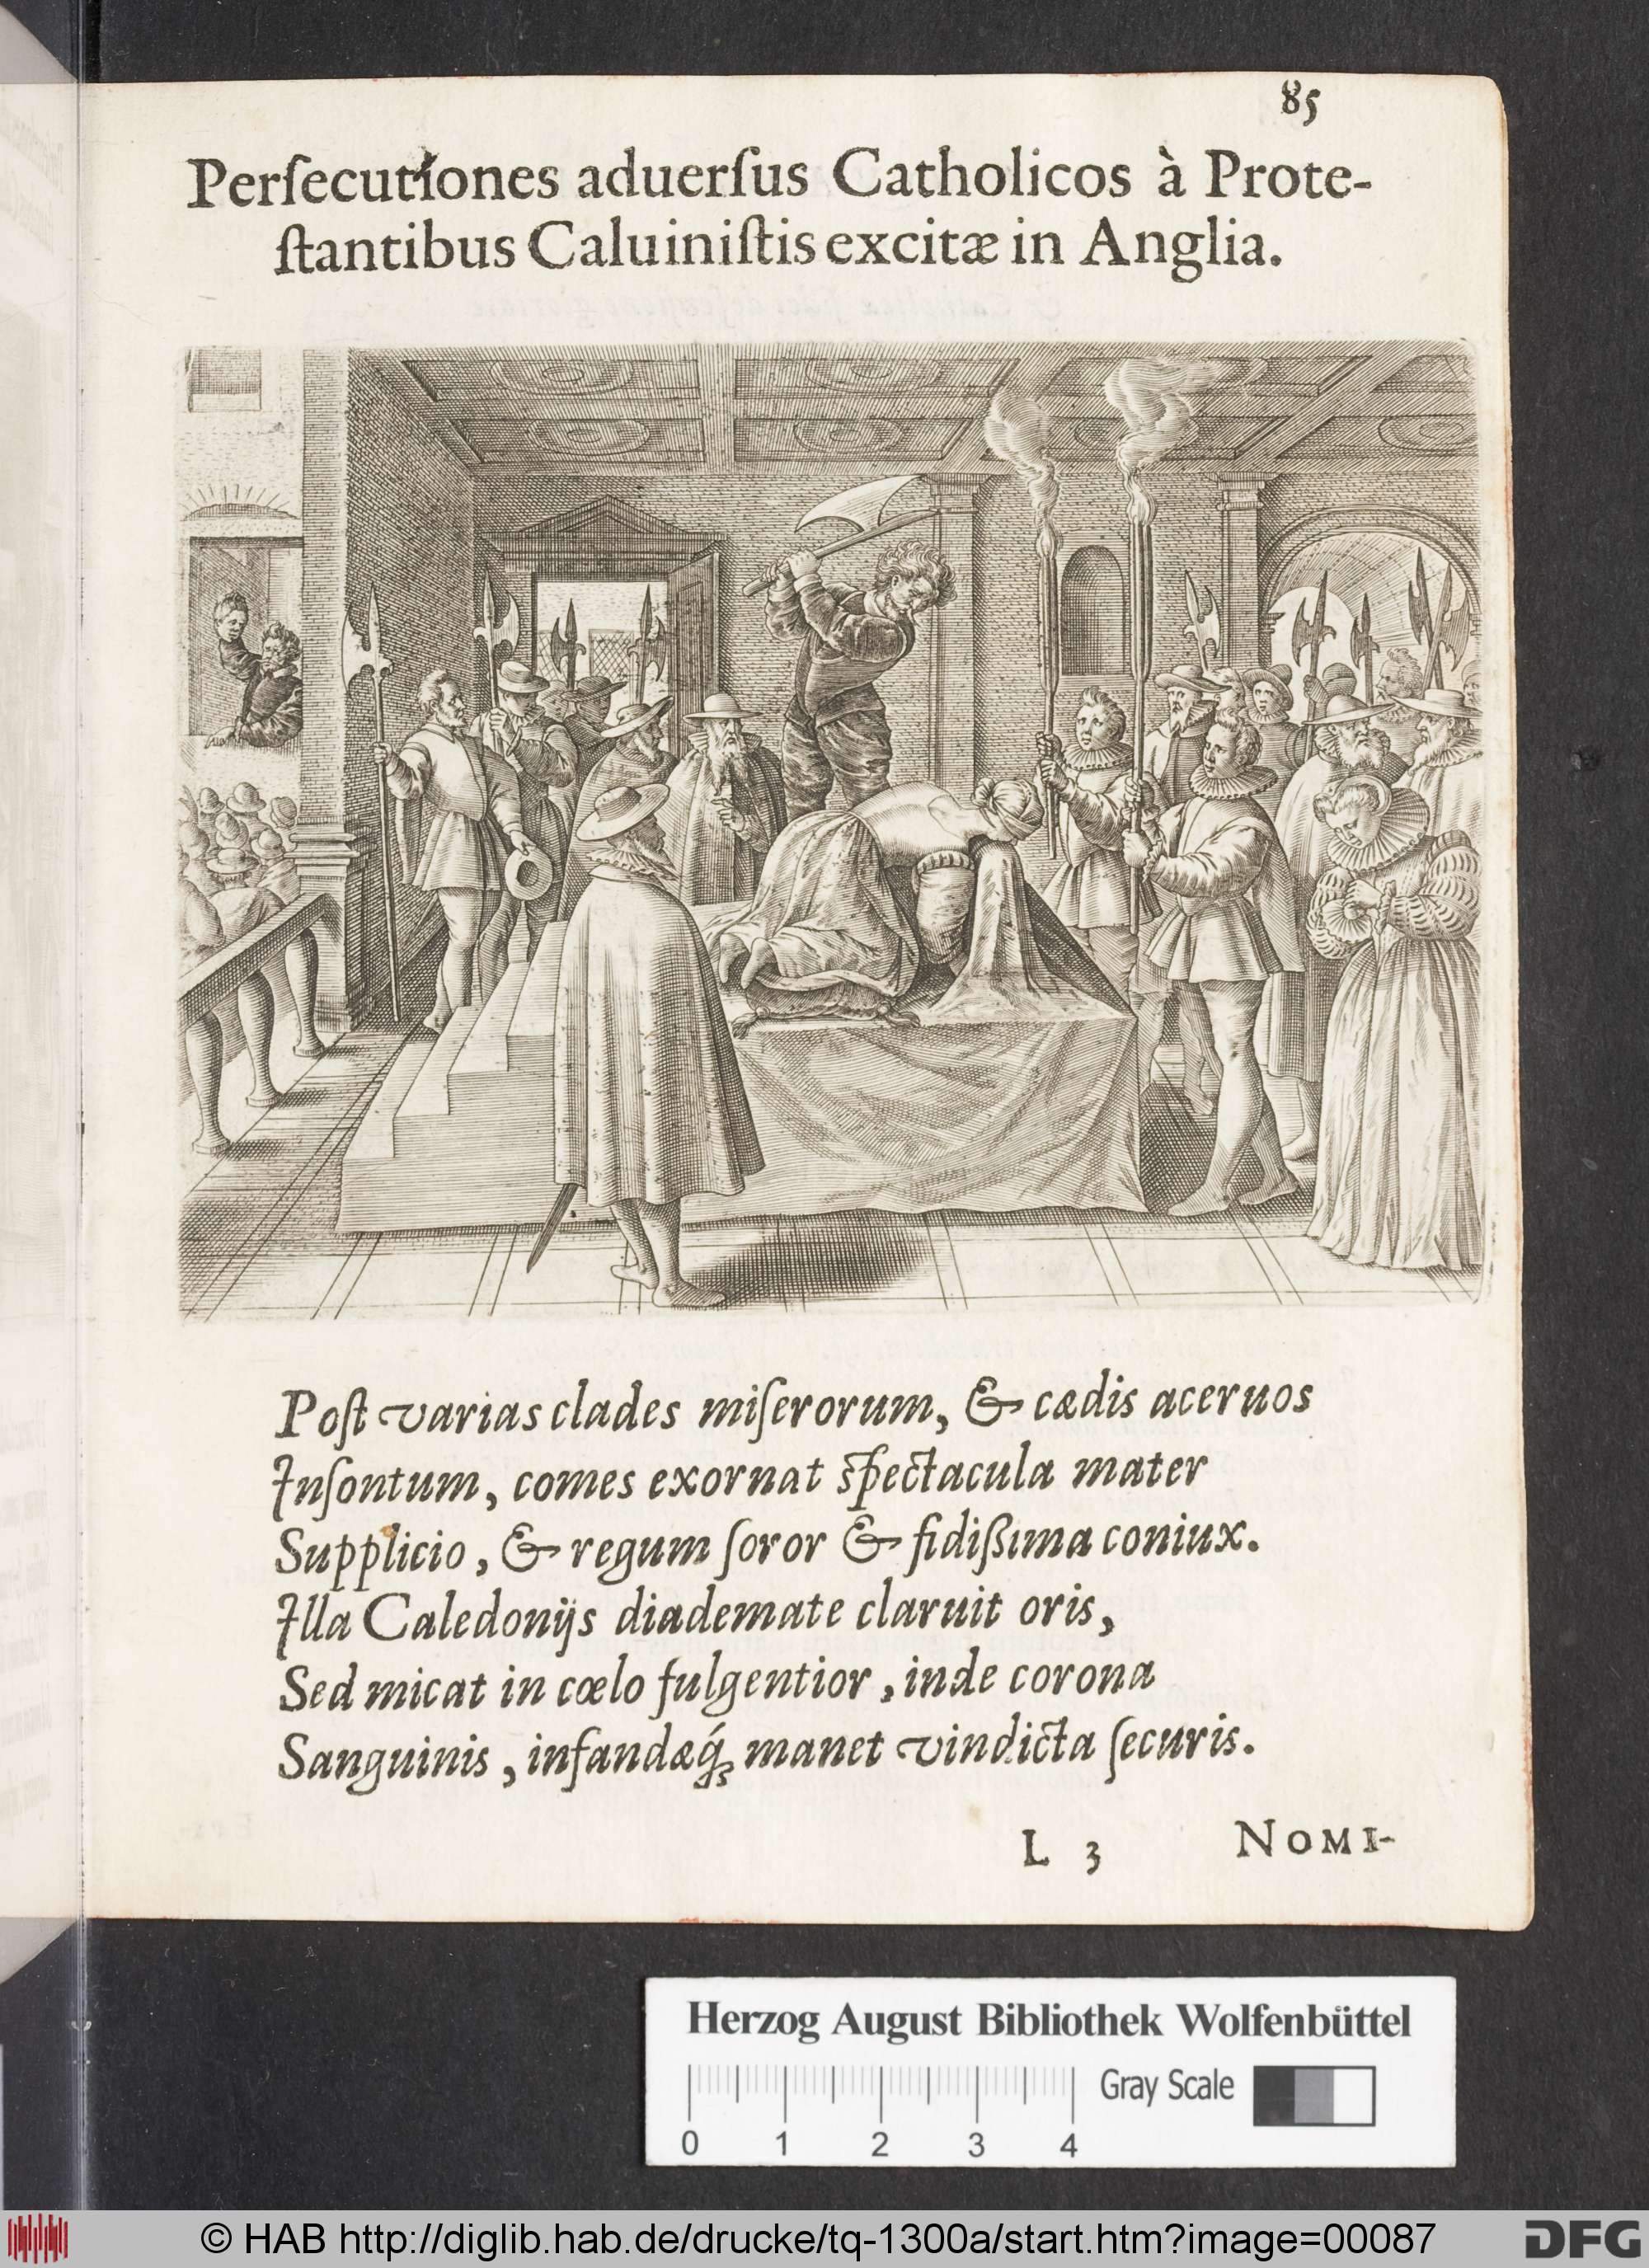 85
Perſecutiones aduerſus Catholicos à Prote-
ſtantibus Caluiniſtis excitæ in Anglia.
Poſt varias clades miſerorum, & cædis aceruos
Inſontum, comes exornat ſpectacula mater
Supplicio, & regum ſoror & fidißima coniux.
Illa Caledonijs diademate claruit oris,
Sed micat in cœlo fulgentior, inde corona
Sanguinis, infandæq́ꝫ manet vindicta ſecuris.
L 3 NOMI-
Herzog August Bibliothek Wolfenbüttel
Gray Scale
0 1 2 3 4
© HAB http://diglib.hab.de/drucke/tq-1300a/start.htm?image=00087
DFG